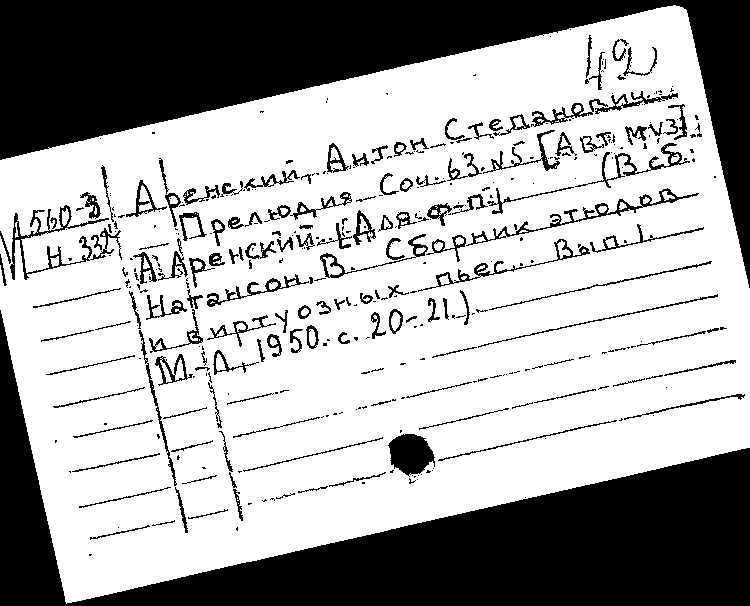 42
Аренский, Антон Степанович.
М 560-3
Н. 332
Прелюдия Соч. 63. N5. [Авт. муз.]:
А. Аренский. [Для ф-п.]. (В сб.:
Натансон, В. Сборник этюдов
и виртуозных пьес... Вып. 1.
М.-Л., 1950. с. 20-21.).